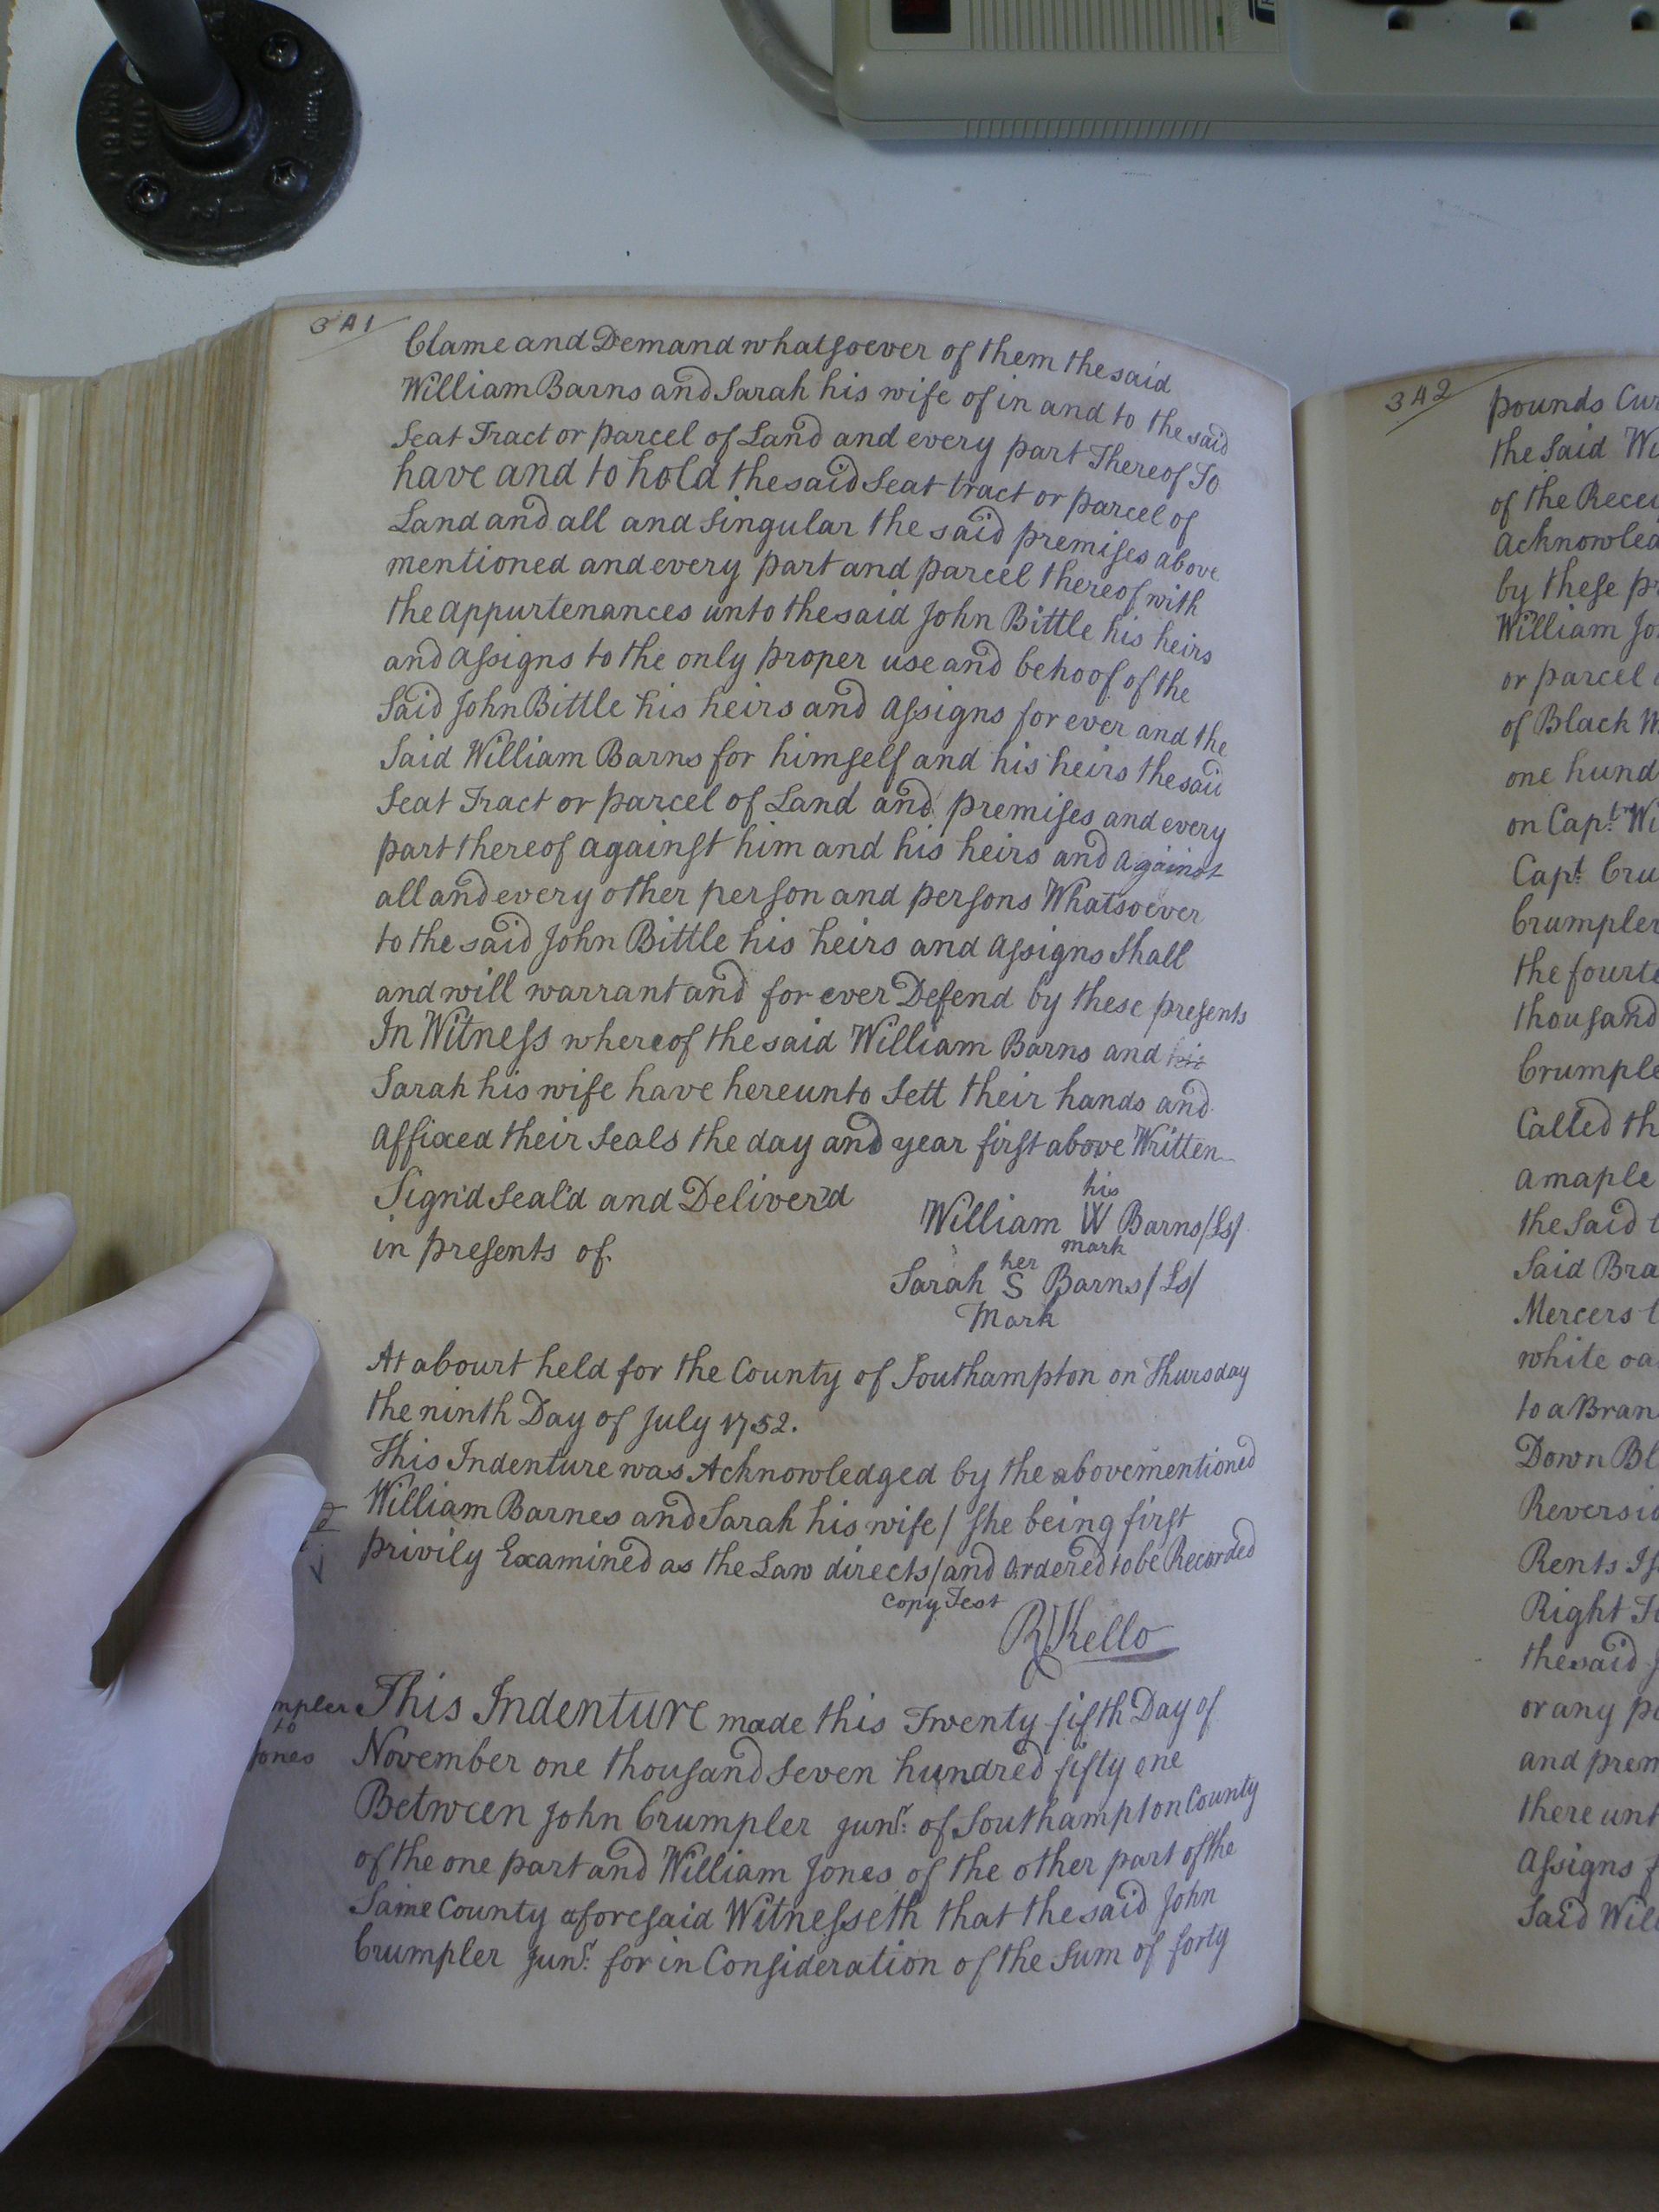 341
Clame and Demand whatsoever of them the said
William Barns and Sarah his wife of in and to the said
Seat Tract or parcel of Land and every part Thereof To
have and to hold the said Seat tract or parcel of
Land and all and Singular the said premises above
mentioned and every part and parcel thereof with
the appurtenances unto the said John Bittle his heirs
and assigns to the only proper use and behoof of the
Said John Bittle his heirs and assigns for ever and the
Said William Barns for himself and his heirs the said
Seat Tract or parcel of Land and premises and every
part thereof against him and his heirs and against
all and every other person and persons Whatsoever
to the said John Bittle his heirs and assigns Shall
and will warrant and for ever Defend by these presents
In Witness whereof the said William Barns and his
Sarah his wife have hereunto Sett their hands and
affixed their Seals the day and year first above Written
Sign'd Seal'd and Deliver'd
in presents of.
his
William W Barns/Ls/
mark
her
Sarah S Barns/Ls/
Mark
At a Court held for the County of Southampton on Thursday
the ninth Day of July 1752.
This Indenture was Acknowledged by the abovementioned
William Barnes and Sarah his wife/ She being first
privily Examined as the Law directs/and Ordered to be Recorded
Copy Test
R Kello
mpler
to
Jones
This Indenture made this Twenty fifth Day of
November one thousand Seven hundred fifty one
Between John Crumpler Junr: of Southampton County
of the one part and William Jones of the other part of the
Same County aforesaid Witnesseth that the said John
Crumpler Junr: for in Consideration of the Sum of forty
342
pounds Cur
the Said Wi
of the Recei
acknowled
by these pr
William Jo
or parcel
of Black W
one hund
on Capt. Wi
Capt. Cru
Crumpler
the fourte
thousand
Crumple
Called th
a maple
the Said
Said Bra
Mercers
white oa
to a Bran
Down Bl
Reversio
Rents Is
Right Ti
the said
or any pa
and prem
there unt
assigns f
Said Will